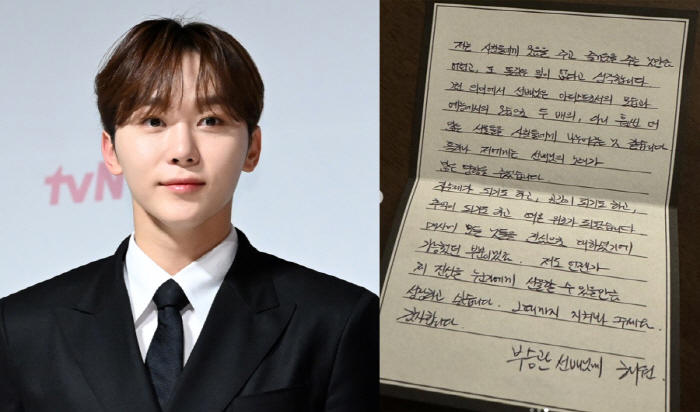 tvN
저는 사람들에게 웃음을 주고 즐거움을 주는 것만큼
어렵고, 또 일이 없다고 생각합니다
그런 의미에서 선배님은 아티스트로서의 모습과
예능에서의 모습으로 두 배의, 아니 훨씬 더
많은 선물을 사람들에게 나누어주는 것 같습니다
특히나 저에게는 선배님의 노래가
많은 영향을 주었습니다
되기도 하고, 공감이 되기도 하고,
추억이 되기도 하고 때론 위로가 되었습니다
매사에 모든 것들을 진심으로 대하셨기에
가능했던 부분이겠죠. 저도 언젠가
제 진심을 누군가에게 선물할 수 있을만큼
성장하고 싶습니다. 그때까지 지켜봐 주세요.
감사합니다.
부승관 선배님께